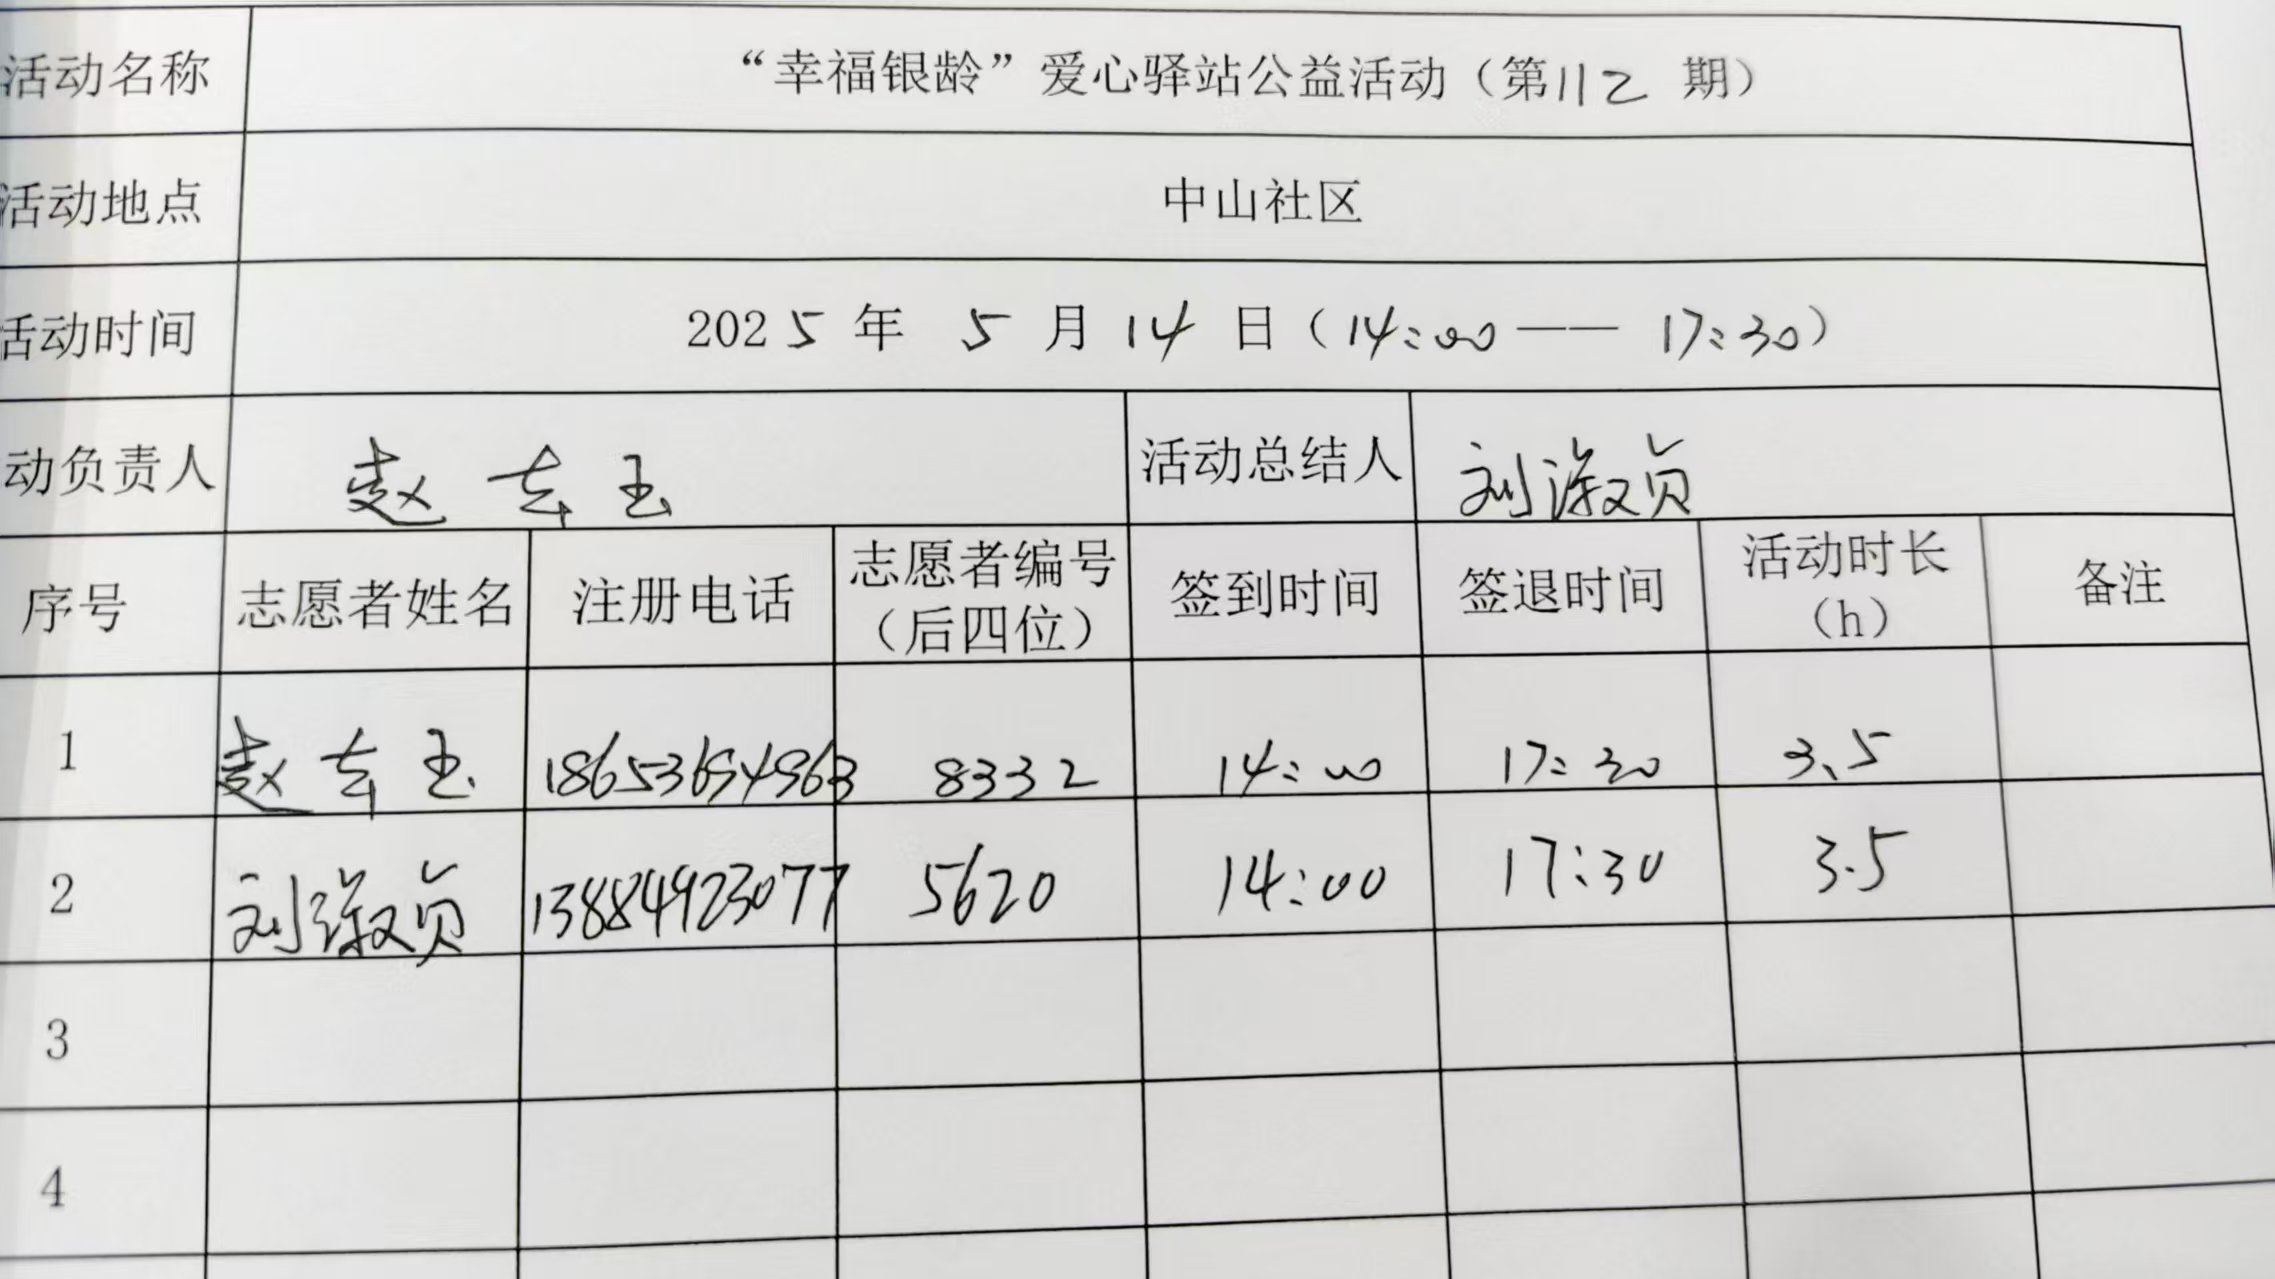 活动名称 “幸福银龄”爱心驿站公益活动（第112 期）
活动地点 中山社区
活动时间 2025 年 5 月 14 日（14:00 —— 17:30）
动负责人 赵 玉 活动总结人 刘淑贞
序号 志愿者姓名 注册电话 志愿者编号（后四位） 签到时间 签退时间 活动时长（h） 备注
1 赵 玉 8332 14:00 17:30 3.5
2 刘淑贞 13884923077 5620 14:00 17:30 3.5
3
4